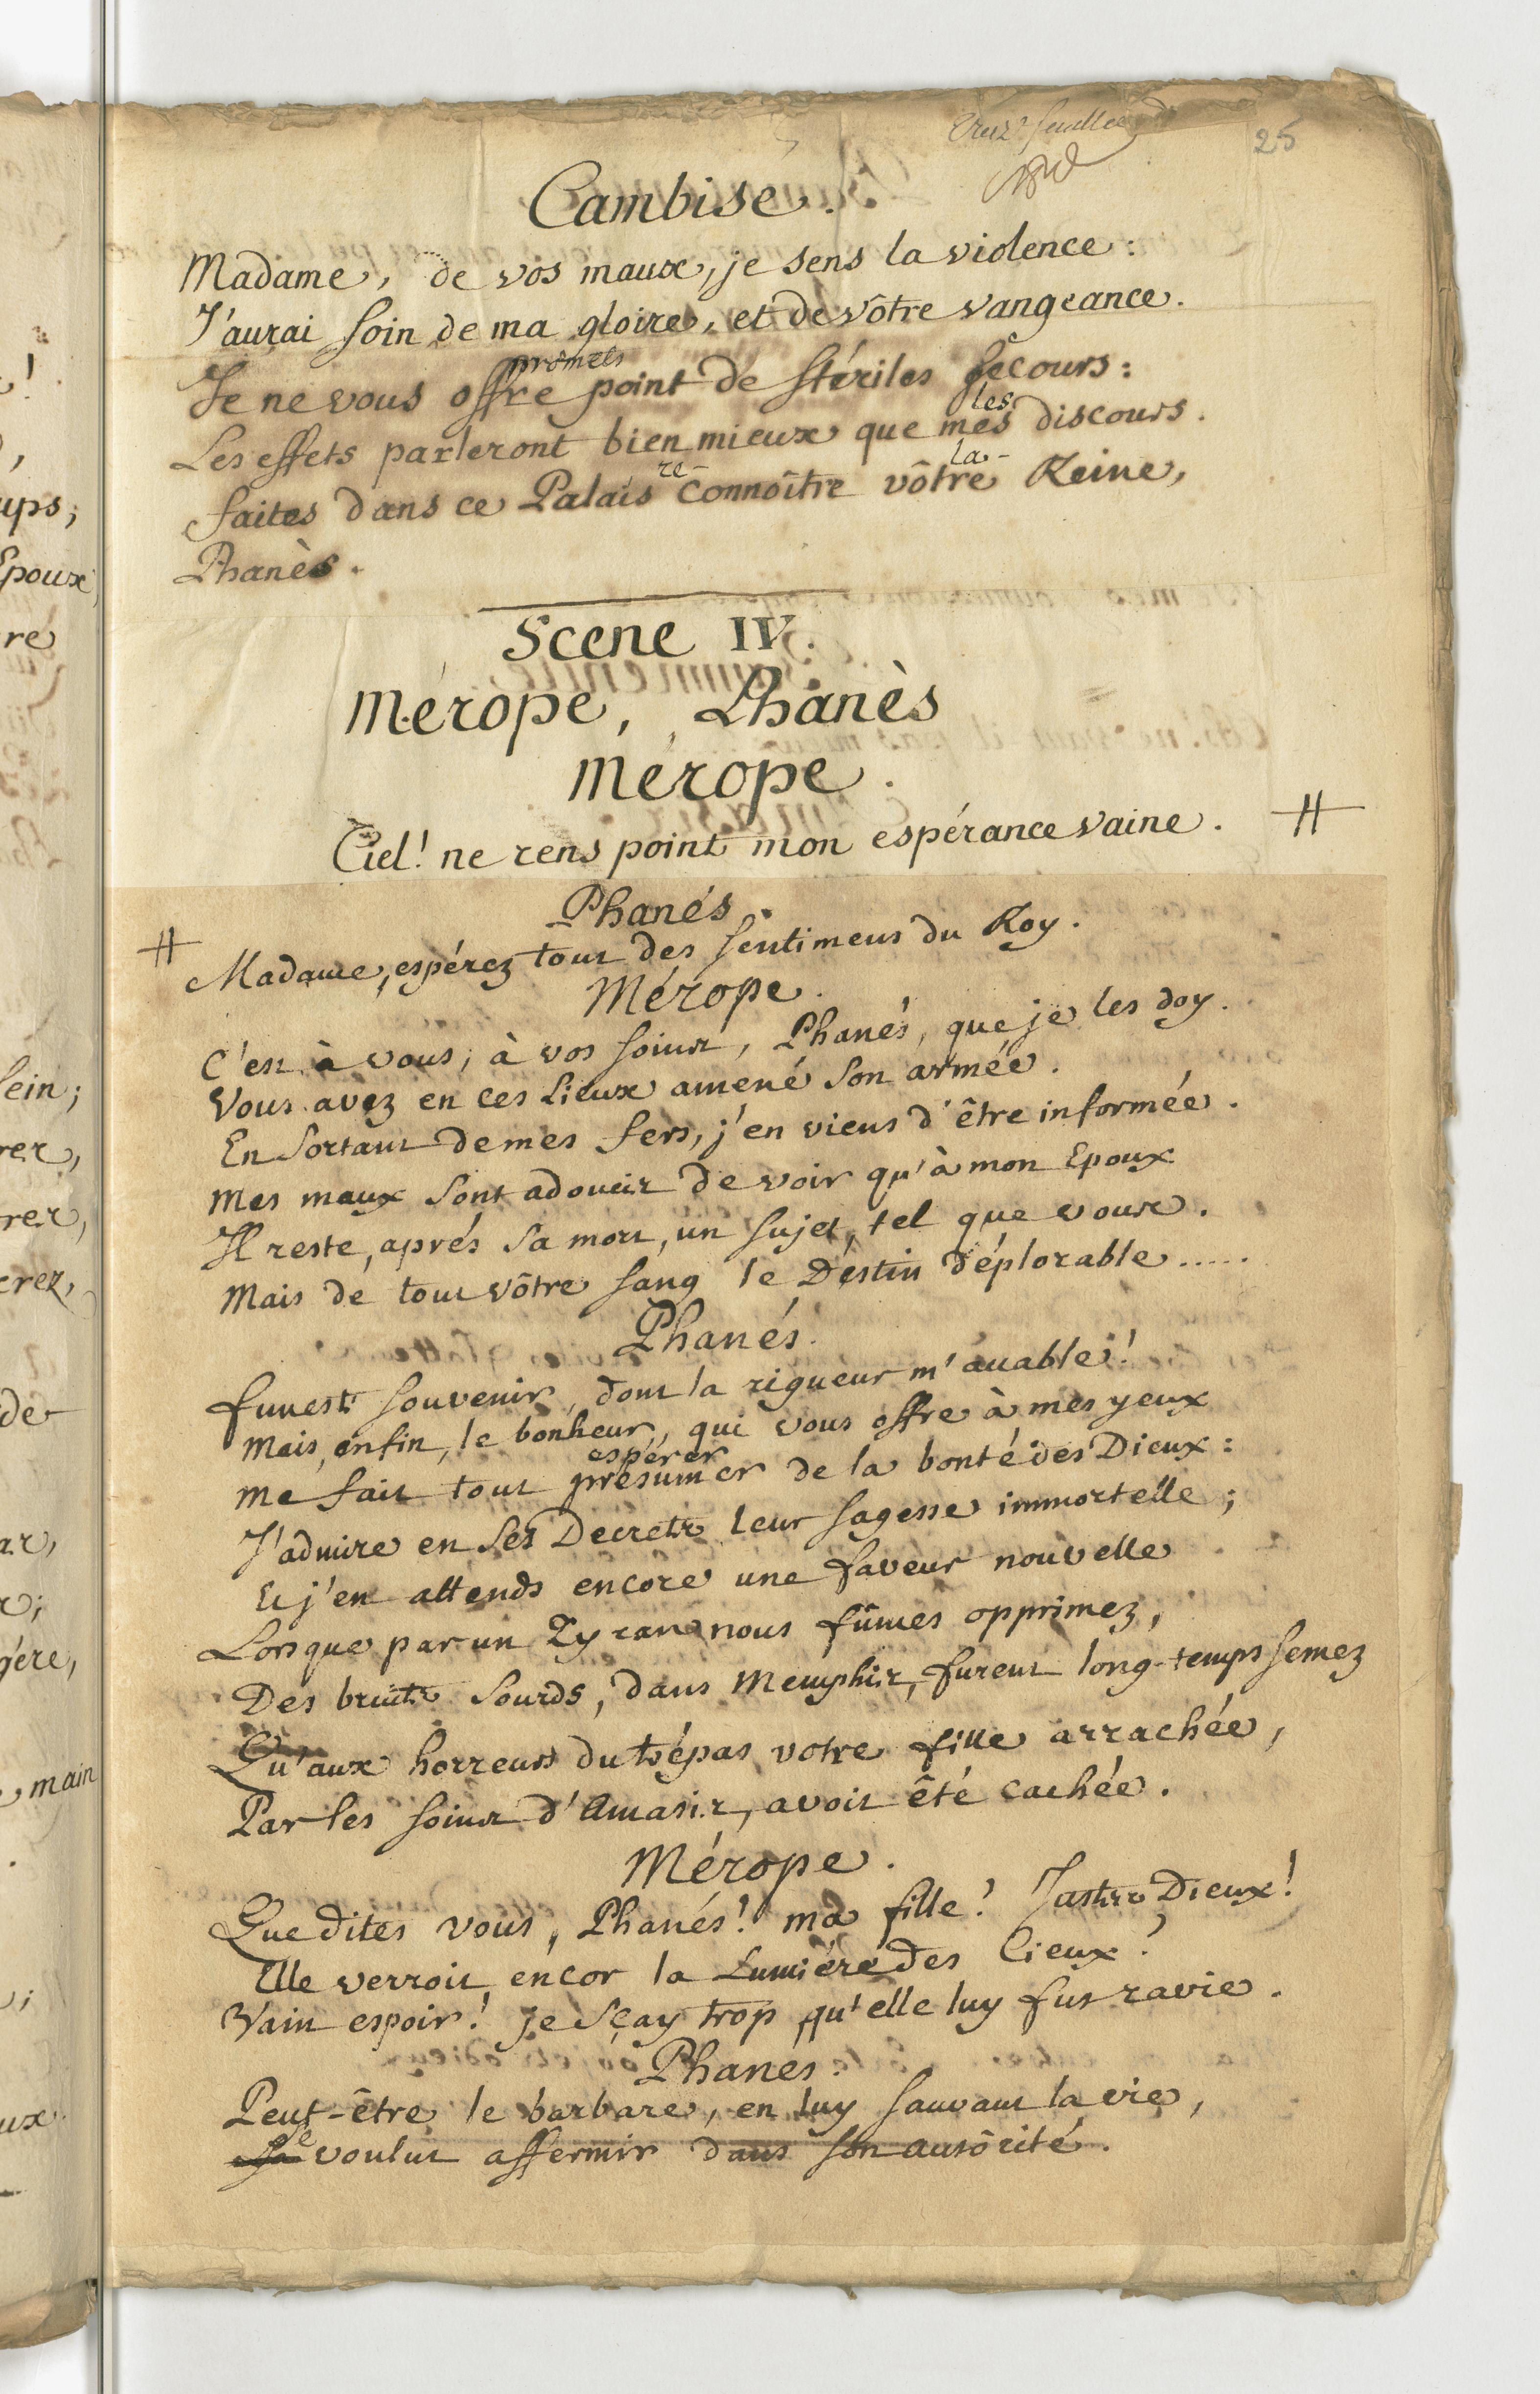 25
Cambise.
Madame, de vos maux, je sens la violence:
J'aurai soin de ma gloire, et de vôtre vangeance.
promets
Je ne vous offre point de stériles secours:
les
Les effets parleront bien mieux que mes discours.
re- la-
faites dans ce Palais connoître vôtre Reine,
Phanès.
Scene IV.
Mérope, Phanès
Mérope.
Ciel! ne rens point mon espérance vaine. #
Phanés.
# Madame, espérez tout des sentimens du Roy.
Mérope.
C'est à vous, à vos soins, Phanés, que je les doy.
Vous avez en ces Lieux amené son armée.
En sortant de mes fers, j'en viens d'être informée.
Mes maux sont adoucis de voir qu'à mon Epoux
Il reste, aprés sa mort, un sujet, tel que vous.
Mais de tout vôtre sang le Destin déplorable.....
Phanés.
funeste souvenir, dont la rigueur m'accable!
Mais, enfin, le bonheur, qui vous offre à mes yeux
espérer
Me fait tout présumer de la bonté des Dieux:
J'admire en ses Decrets leur sagesse immortelle;
Et j'en attends encore une faveur nouvelle
Lorsque par un Tyran nous fûmes opprimez,
Des bruits sourds, dans Memphis, furent long-temps semez
Qu'aux horreurs du trépas votre fille arrachée,
Par les soins d'Amasis, avoit êté cachée.
Mérope.
Que dites vous, Phanés! ma fille! Justes Dieux!
Elle verroit encor la Lumiére des Cieux?
Vain espoir! Je sçay trop qu'elle luy fut ravie.
Phanés.
Peut-être le barbare, en luy sauvant la vie,
Se voulut affermir dans son autôrité.